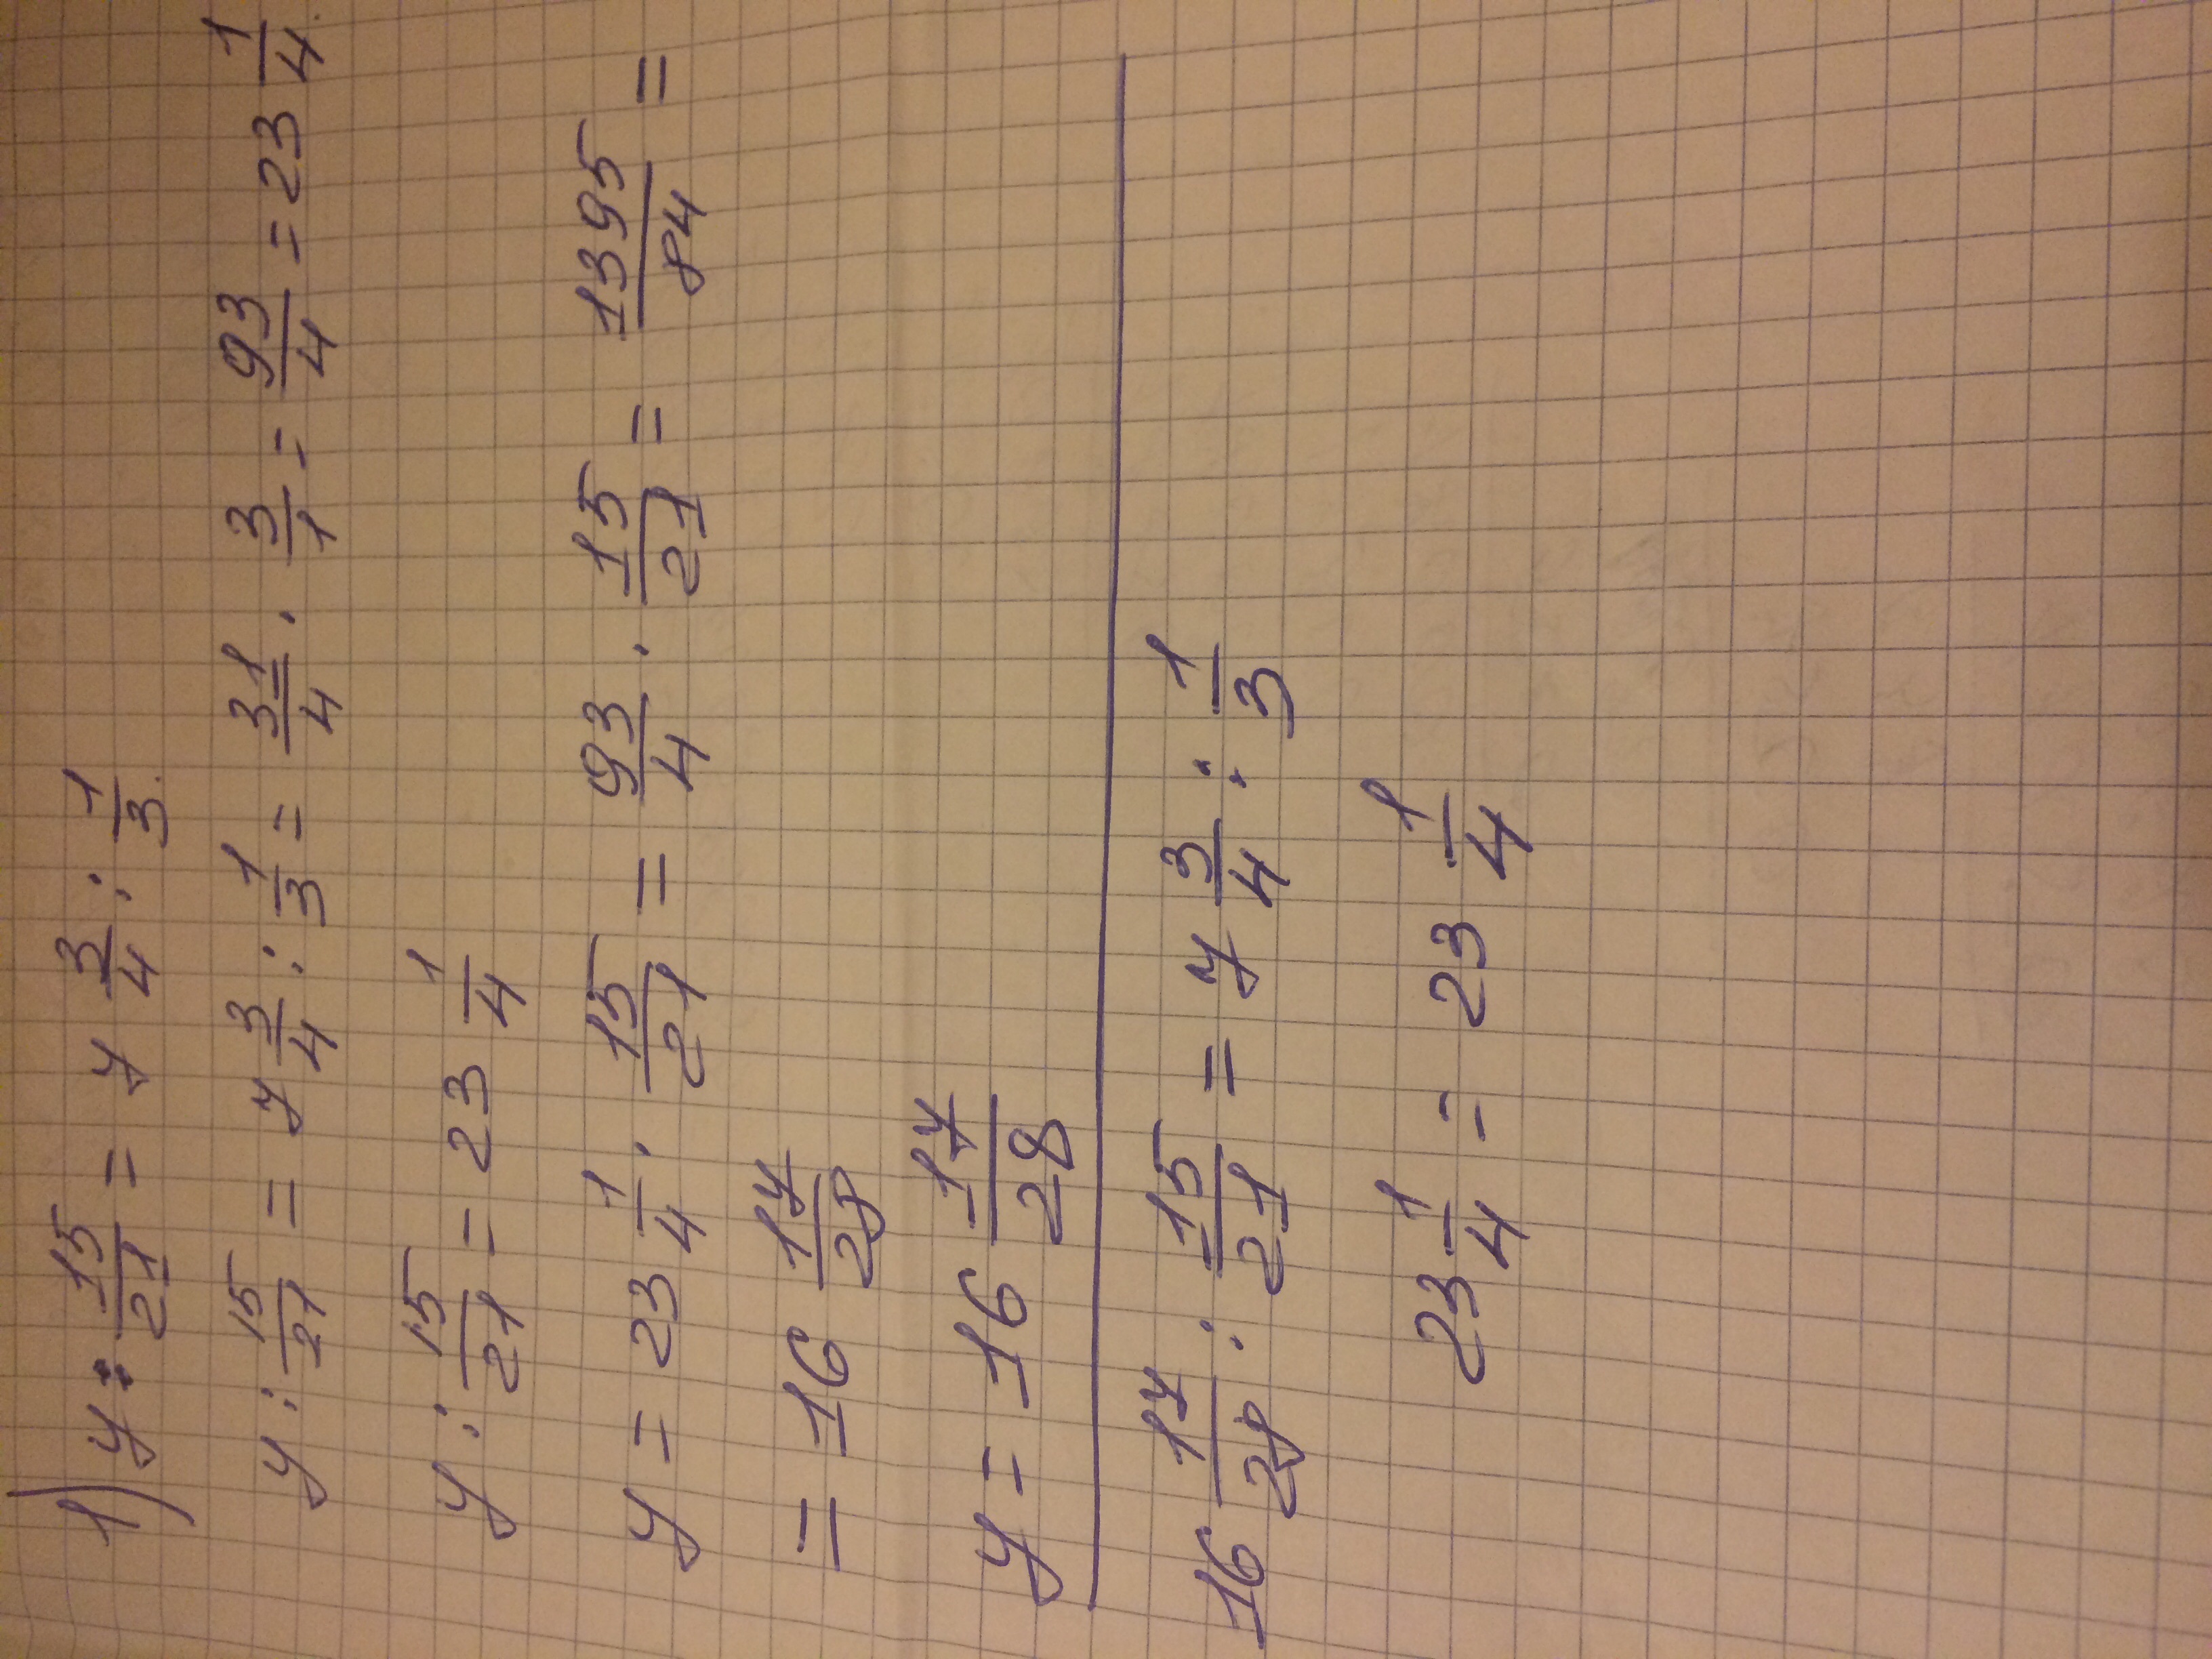 1) y : 15/21 = 7 3/4 : 1/3.
y : 15/21 = 7 3/4 : 1/3 = 31/4 · 3/1 = 93/4 = 23 1/4.
y : 15/21 = 23 1/4
y = 23 1/4 · 15/21 = 93/4 · 15/21 = 1395/84 =
= 16 17/28
y = 16 17/28
16 17/28 : 15/21 = 7 3/4 : 1/3
23 1/4 = 23 1/4